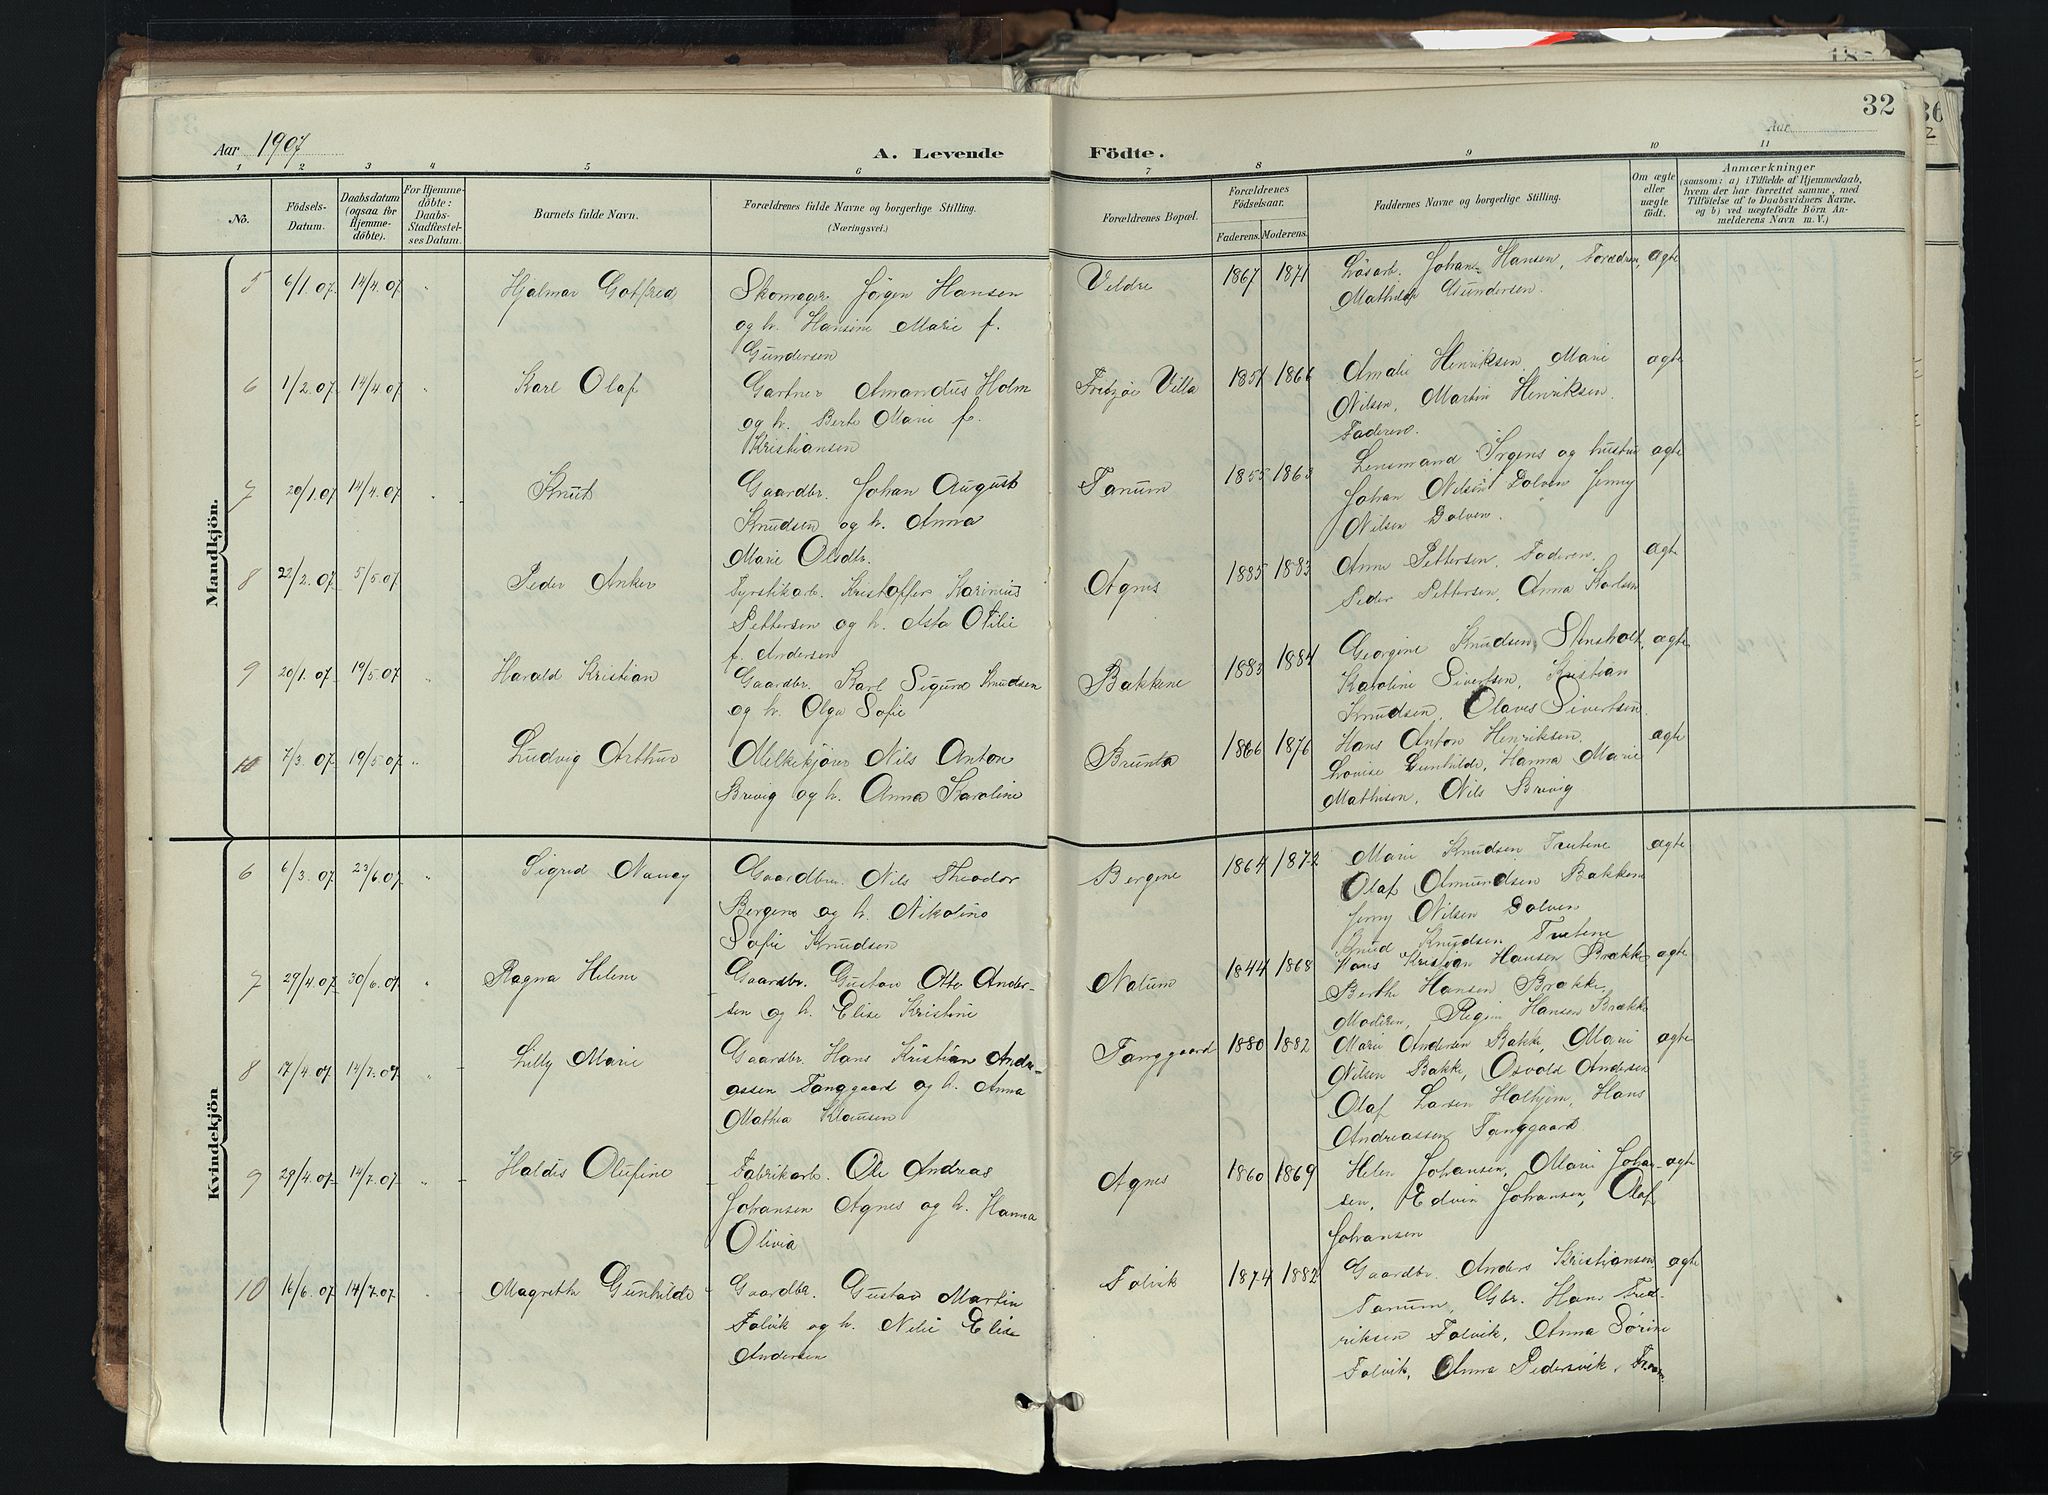 32
Aar 1907
A. Levende Födte.
Aar
1 2 3 4 5 6 7 8 9 10 11
No.
Födsels-Datum.
Daabsdatum (ogsaa for Hjemme-döbte).
For Hjemme-döbte: Daabs-Stadfæstel-ses Datum.
Barnets fulde Navn.
Forældrenes fulde Navne og borgerlige Stilling. (Næringsvei.)
Forældrenes Bopæl.
Forældrenes Födselsaar.
Faderens. Moderens.
Faddernes Navne og borgerlige Stilling.
Om ægte eller uægte födt.
Anmærkninger
(saasom: a) i Tilfælde af Hjemmedaab, hvem der har forrettet samme, med Tilföielse af to Daabsvidners Navne, og b) ved uægtefödte Börn Anmelderens Navn m. V.)
Mandkjön.
5 6/1.07. 14/4.07 " Hjalmar Gotfred
Skomager Jörgen Hansen
og h. Hansine Marie f.
Gundersen
Veldre 1867 1871
Lösarb. Johan Hansen, Forædren, ægte
Mathilde Gundersen.
6 1/2.07. 14/4.07 " Karl Olaf
Gartner Amandus Holm
og h. Berte Marie f.
Kristiansen
Fritzöe Villa 1851 1866
Amalie Henriksen, Marie ægte
Nilsen, Martin Henriksen.
Faderen.
7 20/1.07 14/4.07 " Knut
Gaardbr. Johan August
Knudsen og h. Anna
Marie Olsdtr.
Tanum 1855 1863
Lensmand Irgens og hustru ægte
Johan Nilsen Dolven Jenny
Nilsen Dolven.
8 22/2.07 5/5.07 Peder Anker
Fyrstikarb. Kristoffer Karinius
Pettersen og h. Asta Otilie
f. Andersen
Agnes 1885 1883
Anne Pettersen, Faderen, ægte
Peder Pettersen, Anna Karlsen
9 20/1.07 19/5.07 " Harald Kristian
Gaardbr. Karl Sigurd Knudsen
og h. Olga Sofie
Bakkene 1883 1884
Georgine Knudsen, Stensholt, ægte
Karoline Sivertsen, Kristian
Knudsen, Olaves Sivertsen.
10 7/3.07 19/5.07 " Ludvig Arthur
Melkekjörer Nils Anton
Brevig og h. Anna Karoline
Brunla 1866 1876
Hans Anton Henriksen. ægte
Lovise Gunhilde, Hanna Marie
Mathisen, Nils Brevig
Kvindekjön
6 6/3.07 23/6.07 " Sigrid Nancy
Gaardbr. Nils Theodor
Bergene og h. Nikoline
Sofie Knudsen
Bergene 1864 1872
Marie Knudsen Tutene ægte
Olaf Amundsen Bakkene
Jenny Nilsen Dolven
Knud Knudsen Tutene
7 29/4.07 30/6.07 " Ragna Helene
Gaardbr. Gustav Otto Ander-
sen og h. Elise Kristine
Nalum 1844 1868
Hans Kristian Hansen Brække, ægte
Berthe Hansen Brække,
Moderen, Regine Hansen Brække
8 17/4.07 14/7.07 " Lilly Marie
Gaardbr. Hans Kristian Andre-
assen Tanggaard og h. Anna
Mathea Klausen
Tanggaard 1880 1882
Marie Andersen Bakke, Marie ægte
Nilsen Bakke, Osvald Andersen
Olaf Larsen Holhjem, Hans
Andreassen Tanggaard.
9 29/4.07 14/7.07 " Haldis Olufine
Fabrikarb. Ole Andreas
Johansen Agnes og h. Hanna
Olivia
Agnes 1860 1869
Helene Johansen, Marie Johan- ægte
sen, Edvin Johansen, Olaf
Johansen
10 16/6.07 14/7.07 Magrethe Gunhilde
Gaardbr. Gustav Martin
Folvik og h. Nelie Elise
Andersen
Folvik 1874 1882
Gaardbr. Anders Kristiansen ægte
Tanum, Gbr. Hans Fred-
riksen Folvik, Anna Sörine
Folvik, Anna Pedersvik,